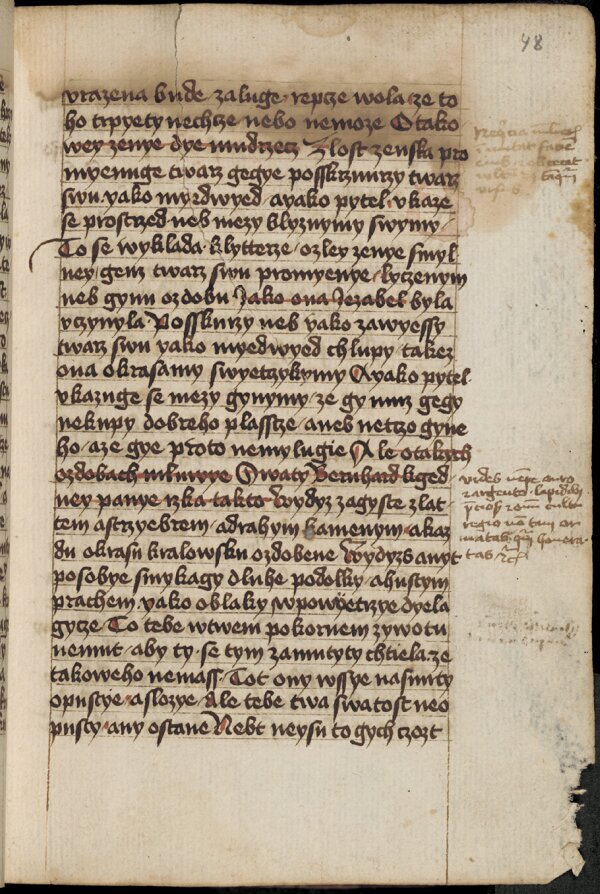 48
vrazena bude zaluge repcze wola ze to
ho trpyety nechcze nebo nemoze O tako
wey zenye dye mudrzecz Zlost zenska pro
myenuge twarz gegye posskrzmurzy twarz
swu yako myedwyed a yako pytel vkaze
se prostrzed neb mezy blyznymy swymy
To se wyklada k lytterze o zley zenye smyl
ney genz twarz swu promyenye lyczenym
neb gynu ozdobu Jako ona Jezabel byla
vczynyla Posskurzy neb yako zawyessy
twarz swu yako myedwyed chlupy takez
ona okrasamy swyetrzykymy A yako pytel
vkazuge se mezy gynymy ze gy muz gegy
nekupy dobreho plasstze aneb netczo gyne
ho aze gye proto nemylugie Ale o takych
ozdobach mluwye Swaty Bernhard kged
ney panye rzka takto Wydyz zagyste zlat
tem a strzyebrem a drahym kamenym a kaz
du okrasu kralowsku ozdobene Wydyzs a nyt
posobye smykagy dluhe podolky a hustym
prachem yako oblaky w powyetrzye dyela
gycze To tebe w twem pokornem zywotu
nemut aby ty se tym zamutyty chtiela ze
takoweho nemass Tot ony wssye nasmuty
opustye a slozye Ale tebe twa swatost neo
pusty any ostane Nebt neysu to gych czozt
vides
auro
argento lapidib
cultu
regio
or
matas
tas